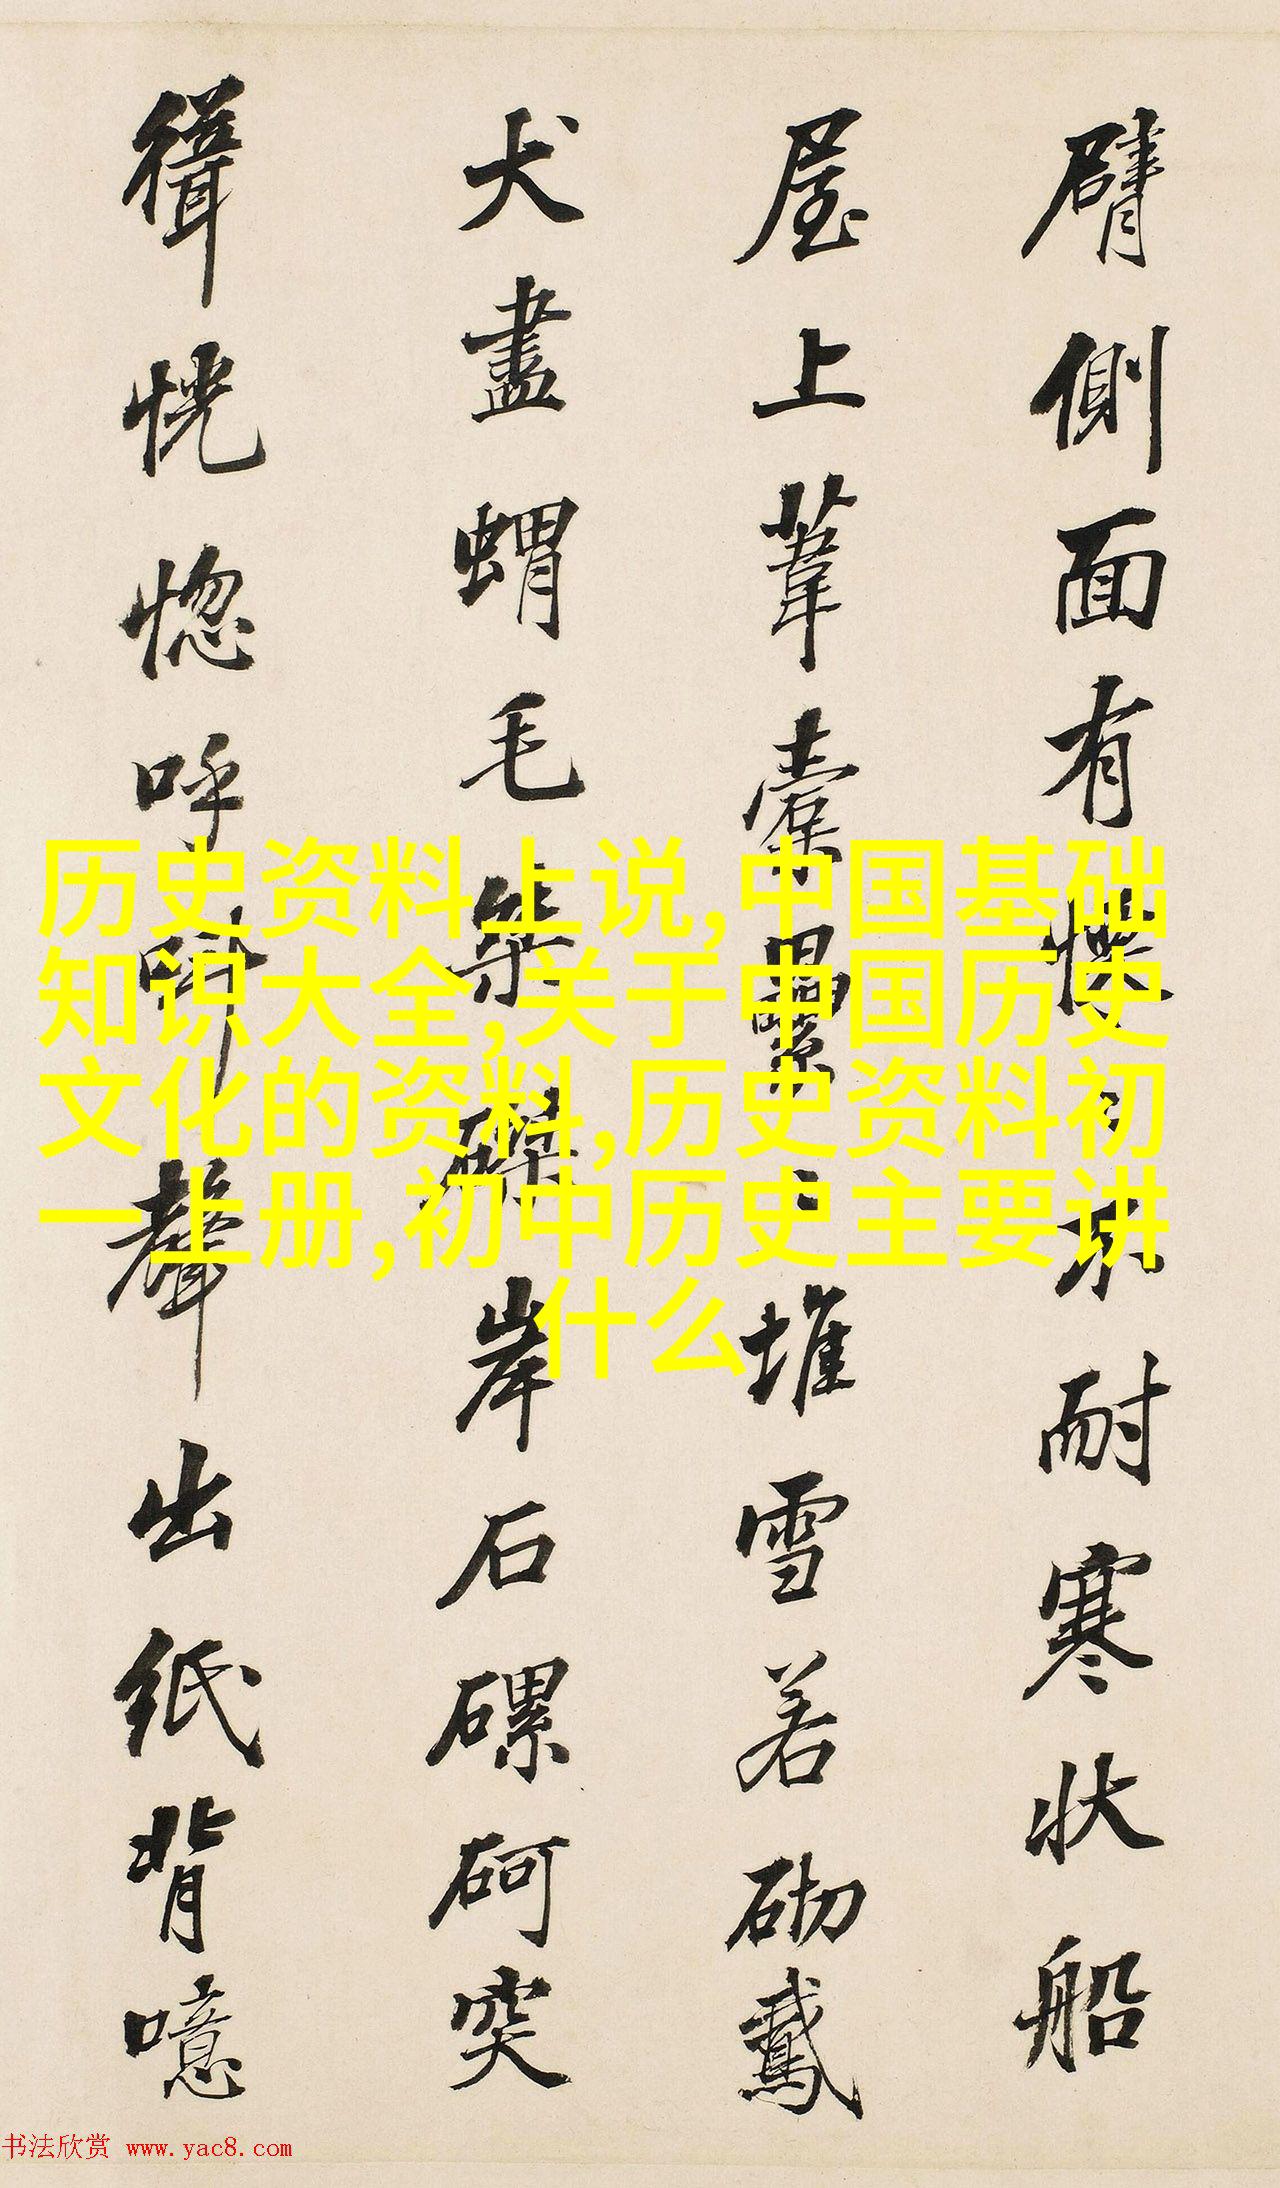 臂側面有慄〻不耐寒状船
屋上葦橐纍〻堆雪若砌鳶
犬盡蝟毛桀磔岸石磥砢突
緝恍惚呼㕸聲出紙背噫
历史资料上说,中国基础
知识大全,关于中国历史
文化的资料,历史资料初
一上册,初中历史主要讲
什么
书法欣赏 www.yac8.com